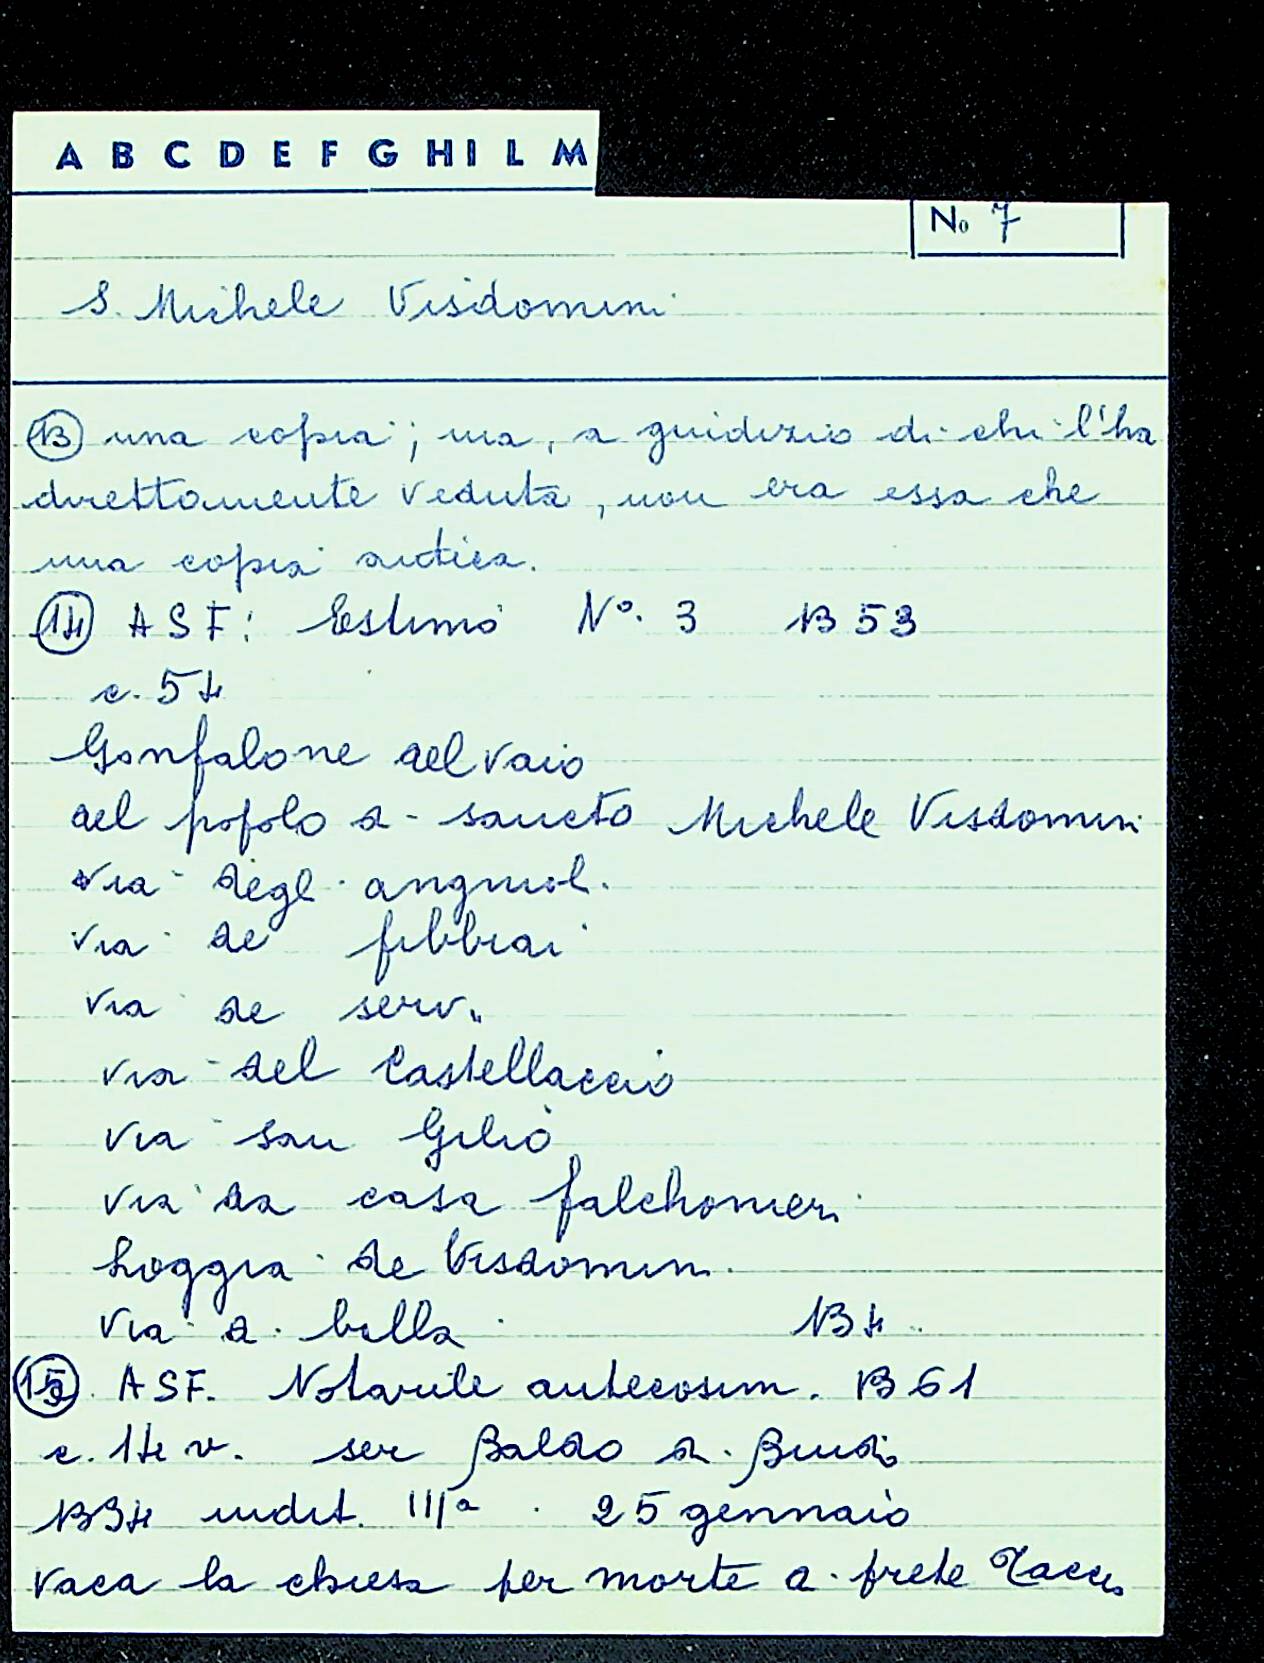 A B C D E F G H I L M
No 7
S. Michele Visdomini
(13) una copia; ma, a guidizio di chi l'ha
direttamente veduta, non era essa che
una copia antica.
(14) ASF: Estimo No. 3 1353
c. 54
Gonfalone del vaio
del popolo di sancto Michele Visdomini
via degl angnioli.
via de fibbiai
via de servi
via del Castellaccio
via san Gilio
via da casa falchonieri
Loggia de Visdomini
via di bella 134
(15) ASF. Notarile antecosim. B 61
c. 14 v. ser Baldo di Bindi
1334 indit. IIIa . 25 gennaio
vaca la chiesa per morte di prete